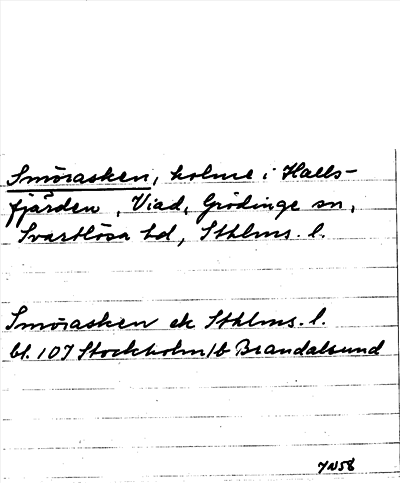 Smörasken, holme i Halls-
fjärden, Viad, Grödinge sn,
Svartlösa hd, Sthlms. l.
Smörasken ek Sthlms. l.
bl. 107 Stockholm/b Brandalsund